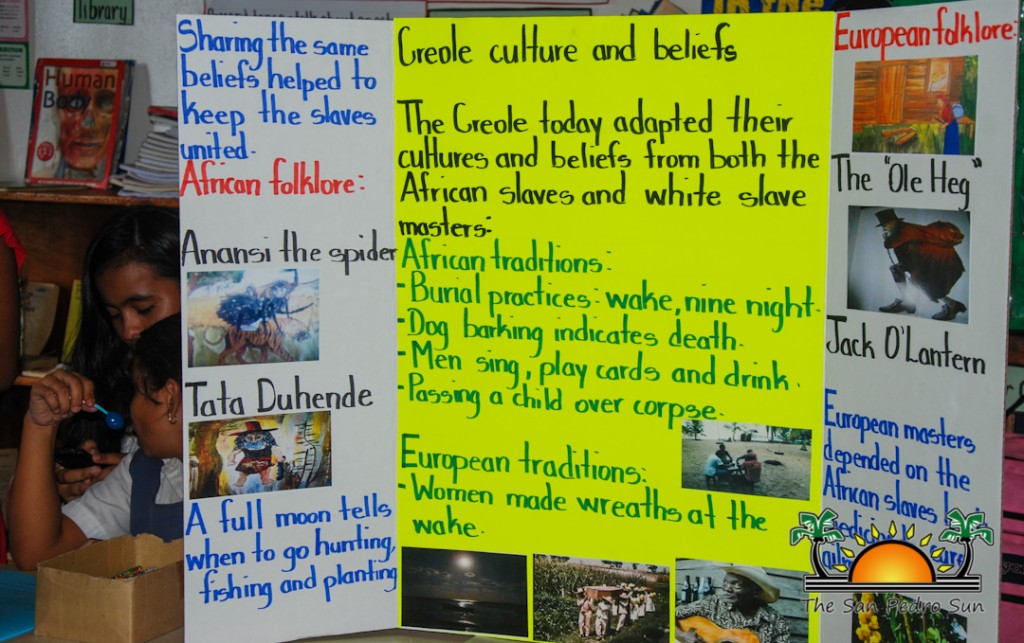 library
Human
Body
Sharing the same
beliefs helped to
keep the slaves
united.
African folklore:
Anansi the spider
Tata Duhende
A full moon tells
when to go hunting,
fishing and planting
Creole culture and beliefs
The Creole today adapted their
cultures and beliefs from both the
African slaves and white slave
masters:
African traditions:
-Burial practices: wake, nine night.
-Dog barking indicates death.
-Men sing, play cards and drink.
-Passing a child over corpse.
European traditions:
-Women made wreaths at the
wake.
European folklore:
The "Ole Heg"
Jack O'Lantern
European masters
depended on the
African slaves
The San Pedro Sun